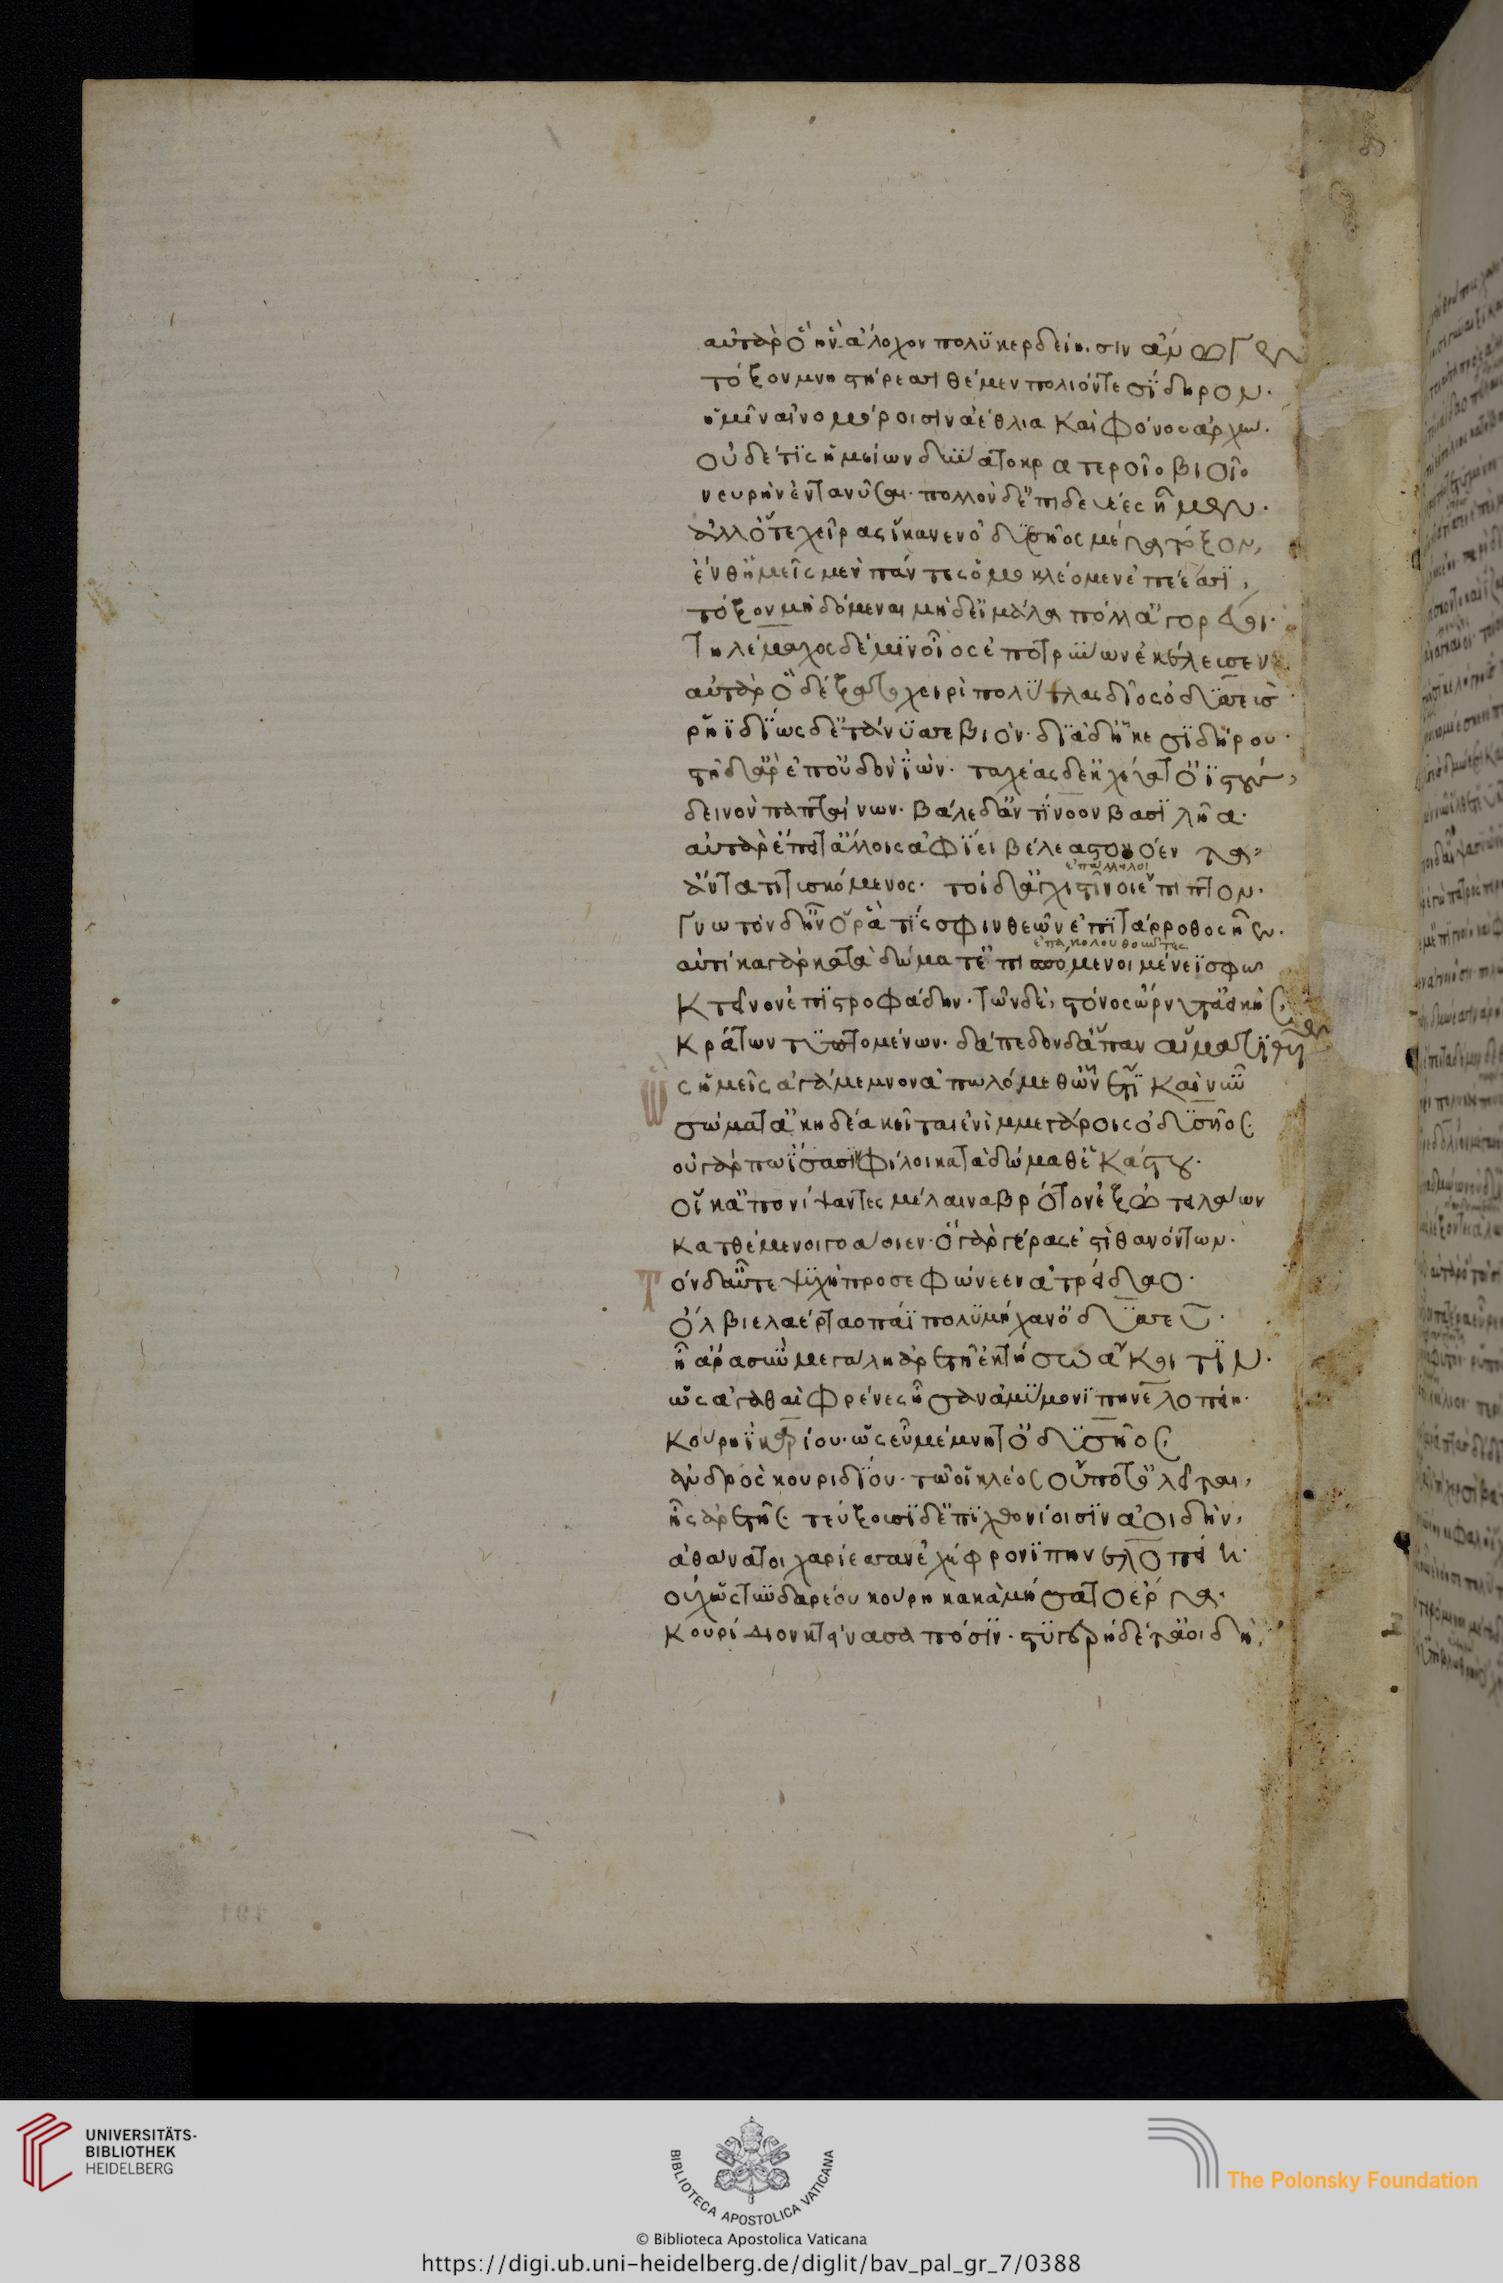 αὐτὰρ ὃ ἣν ἄλοχον πολυκερδείησιν ἄνωγεν
τόξον μνηστήρεσσι θέμεν πολιόν τε σίδηρον·
ἡμῖν αἰνομόροισιν ἀέθλια καὶ φόνου ἀρχήν·
οὐδέ τις ἡμείων δύνατο κρατεροῖο βιοῖο
νευρὴν ἐντανύσαι· πολλὸν δ' ἐπιδευέες ἦμεν·
ἀλλ' ὅτε χεῖρας ἵκανεν ὀδυσσῆος μέγα τόξον,
ἔνθ' ἡμεῖς μὲν πάντες ὁμοκλέομεν ἐπέεσσι,
τόξον μὴ δόμεναι μηδ' εἰ μάλα πόλλ' ἀγορεύοι·
Τηλέμαχος δέ μιν οἶος ἐποτρύνων ἐκέλευσεν·
αὐτὰρ ὃ δέξατο χειρὶ πολύτλας δῖος ὀδυσσεύς·
ῥηϊδίως δ' ἐτάνυσσε βιόν· διὰ δ' ἧκε σιδήρου·
στῆ δ' ἄρ' ἐπ' οὐδὸν ἰών· ταχέας δ' ἐκχεύατ' ὀϊστούς,
δεινὸν παπταίνων· βάλε δ' ἀντίνοον βασιλῆα·
αὐτὰρ ἔπειτ' ἄλλοις ἀφίει βέλεα στονόεντα,
ἐπάλληλοι
ἄντα τιτυσκόμενος· τοὶ δ' ἀγχιστῖνοι ἔπιπτον·
Γνωτὸν δ' ἦν ὅ ῥά τίς σφιν θεῶν ἐπιτάρροθος ἦεν·
ἐπακολουθοῦντες
αὐτίκα γὰρ κατὰ δώματ' ἐπισπόμενοι μένεϊ σφῶ
Κτεῖνον ἐπιστροφάδην· τῶν δὲ, στόνος ὤρνυτ' ἀεικής·
Κράτων τυπτομένων· δάπεδον δ' ἅπαν αἵματι θῦεν
ὣς ἡμεῖς ἀγάμεμνον ἀπωλόμεθ' ὧν ἔτι καὶ νῦν
σώματ' ἀκηδέα κεῖται ἐνὶ μμεγάροις ὀδυσσῆος·
οὐ γάρ πω ἴσασι φίλοι κατὰ δώμαθ' ἑκάστου·
οἵ κ' ἀπονίψαντες μέλαινα βρότον ἐξ ὠτειλάων
Κατθέμενοι γοάοιεν· ὃ γὰρ γέρας ἐστὶ θανόντων·
Τὸν δ' αὖτε ψυχὴ προσεφώνεεν ἀτρείδαο·
Ὄλβιε λαέρταο πάϊ πολυμήχαν' ὀδυσσεῦ·
ἦ ἄρα σὺν μεγάλη ἀρετῆ ἐκτήσω ἄκοιτιν·
ὡς ἀγαθαὶ φρένες ἦσαν ἀμύμονι πηνελοπείη·
Κούρη ἰκαρίου· ὡς εὖ μέμνητ' ὀδυσσῆος·
ἀνδρὸς κουριδίου· τῶ οἱ κλέος οὔποτ' ὀλεῖται,
ἧς ἀρετῆς· τεύξουσι δ' ἐπιχθονίοισιν ἀοιδὴν,
ἀθάνατοι χαρίεσσαν ἐχέφρονι πηνελοπείη·
οὐχ ὡς τυνδαρέου κούρη κακὰ μήσατο ἔργα·
Κουρίδιον κτείνασα πόσιν· στυγερὴ δέ τ' ἀοιδὴ
UNIVERSITÄTS-
BIBLIOTHEK
HEIDELBERG
BIBLIOTECA APOSTOLICA VATICANA
The Polonsky Foundation
© Biblioteca Apostolica Vaticana
https://digi.ub.uni-heidelberg.de/diglit/bav_pal_gr_7/0388